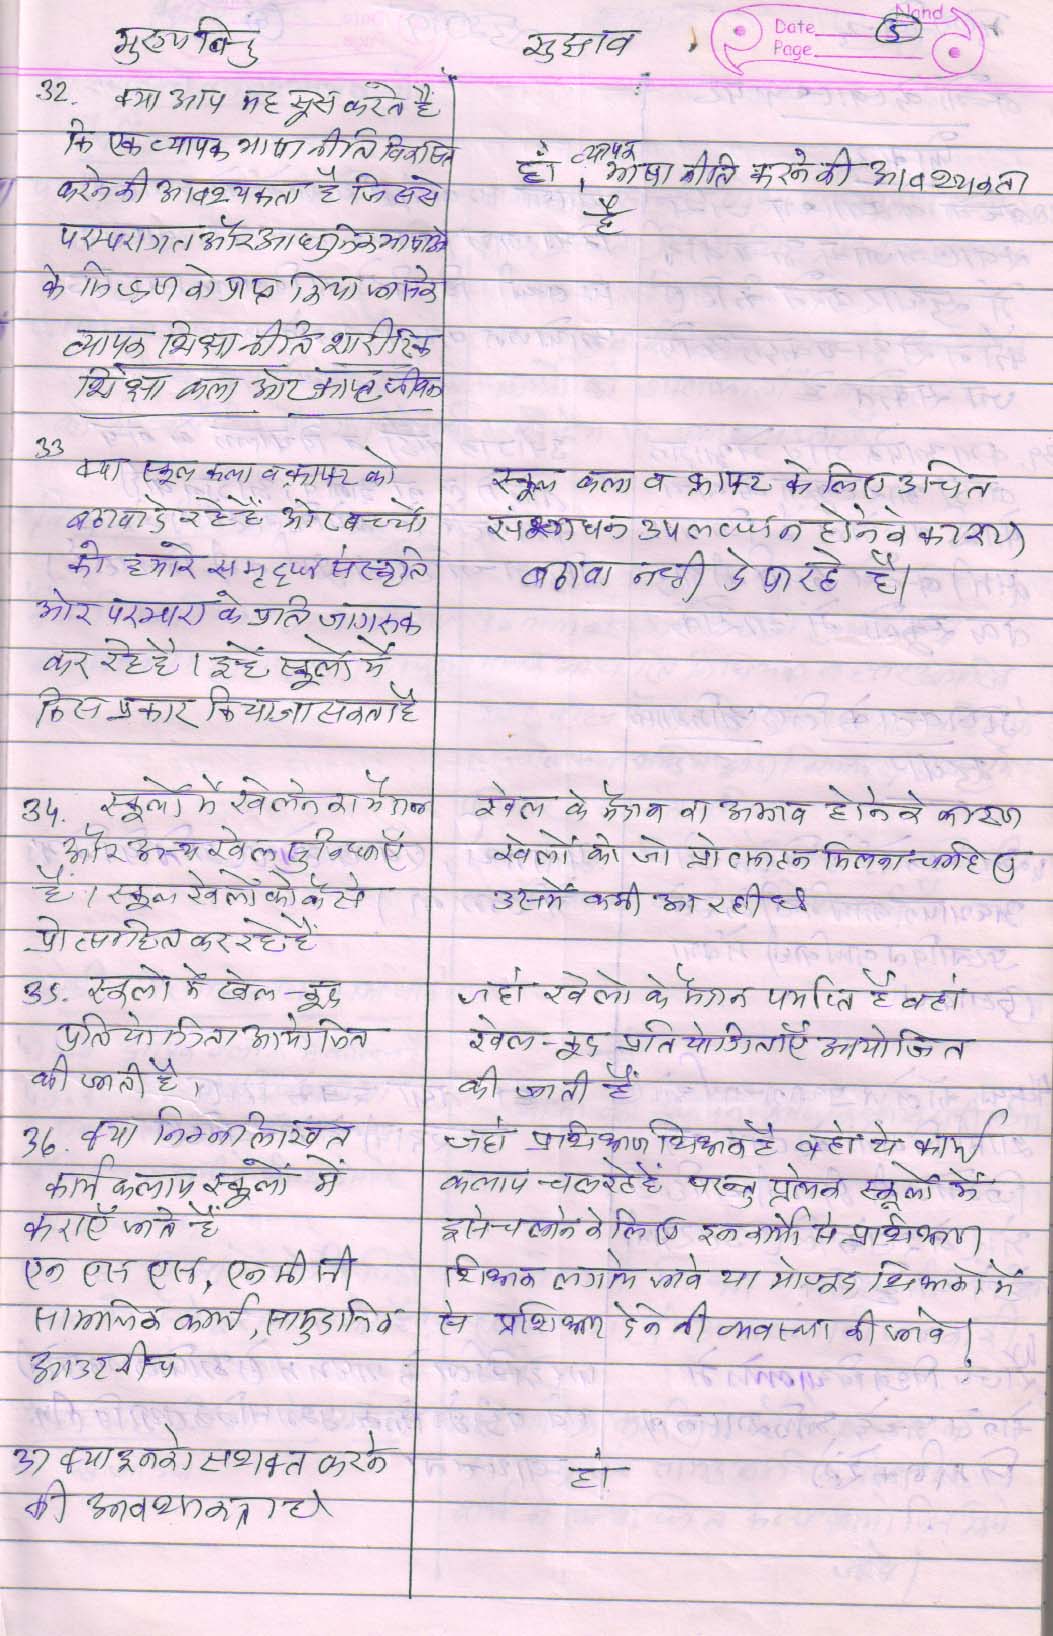 Nand
Date
Page
5
मुख्य बिंदु
सुझाव
32. क्या आप महसूस करते हैं
कि एक व्यापक भाषा नीति विकसित
करने की आवश्यकता है जिससे
परम्परागत और आधुनिक भाषाओं
के को प्राप्त किया जा सके
व्यापक शिक्षा नीति शारीरिक
शिक्षा कला और क्राफ्ट
हाँ, व्यापक भाषा नीति करने की आवश्यकता
है
33
क्या स्कूल कला व क्राफ्ट को
बढावा दे रहे हैं और बच्चों
को हमारे समृद्ध संस्कृति
और परम्परा के प्रति जागरूक
कर रहे है। इन्हें स्कूलों में
किस प्रकार किया जा सकता है
स्कूल कला व क्राफ्ट के लिए उचित
संसाधन उपलब्ध न होने के कारण
बढावा नही दे पा रहे हैं।
34. स्कूलों में खेलने का मैदान
और अन्य खेल सुविधाएँ
हैं। स्कूल खेलों को कैसे
प्रोत्साहित कर रहे हैं
खेल के मैदान का अभाव होने के कारण
खेलों को जो प्रोत्साहन मिलना चाहिए
उसमें कमी आ रही है
35. स्कूलों में खेल-कूद
प्रतियोगिता आयोजित
की जाती है,
जहां खेलो के मैदान पर्याप्त हैं वहां
खेल-कूद प्रतियोगिताएँ आयोजित
की जाती हैं
36. क्या निम्नलिखित
कार्य कलाप स्कूलों में
कराएँ जाते हैं
एन एस एस, एन सी सी
सामाजिक कार्य, सामुदायिक
आउटरीच
जहां प्रशिक्षण शिक्षक है वहां ये कार्य
कलाप चल रहे हैं परन्तु प्रत्येक स्कूलों में
इसे चलाने के लिए इन कार्यो से प्रशिक्षण
शिक्षक लगाये जावे या मौजूद शिक्षकों में
से प्रशिक्षण देने की व्यवस्था की जावे।
37 क्या इनको सशक्त करने
की आवश्यकता है
हाँ